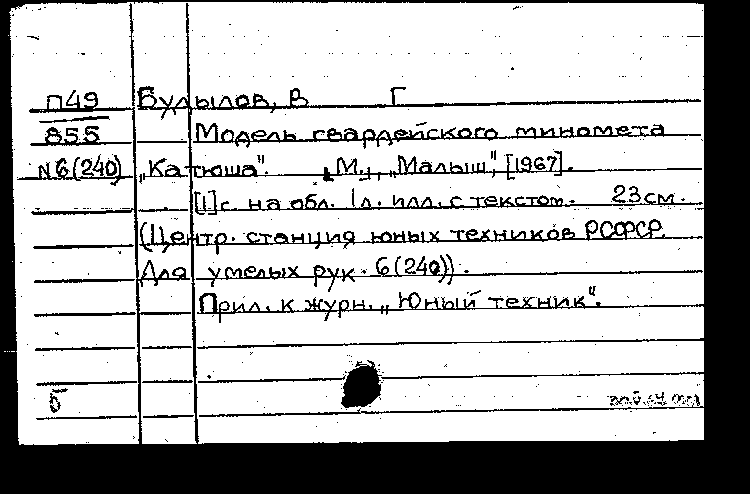 П49 Будылов, В Г
855 Модель гвардейского миномета
N6(240) „Катюша". М., „Малыш", [1967].
[1]с. на обл. 1л. илл. с текстом. 23см.
(Центр. станция юных техников РСФСР.
Для умелых рук. 6(240)).
Прил. к журн. „Юный техник".
б